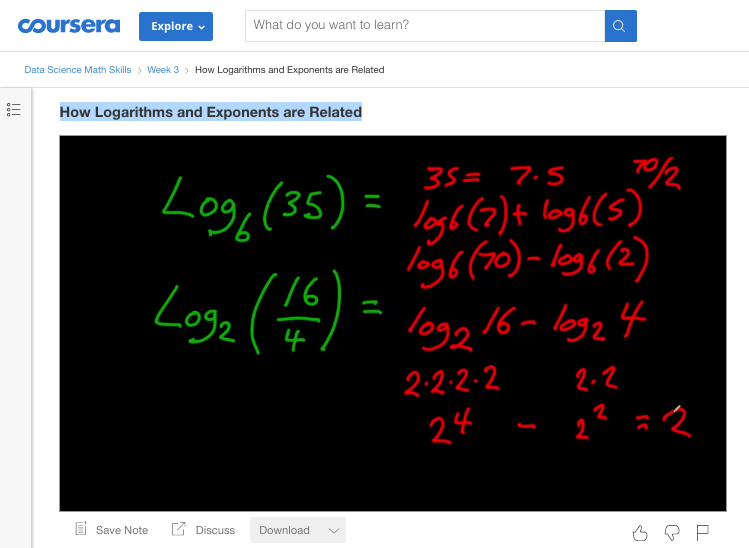 coursera Explore What do you want to learn?
Data Science Math Skills > Week 3 > How Logarithms and Exponents are Related
How Logarithms and Exponents are Related
Log₆(35) = 35 = 7·5 70/2
log6(7) + log6(5)
log6(70) - log6(2)
Log₂(16/4) = log₂ 16 - log₂ 4
2·2·2·2 2·2
2⁴ - 2² = 2
Save Note Discuss Download